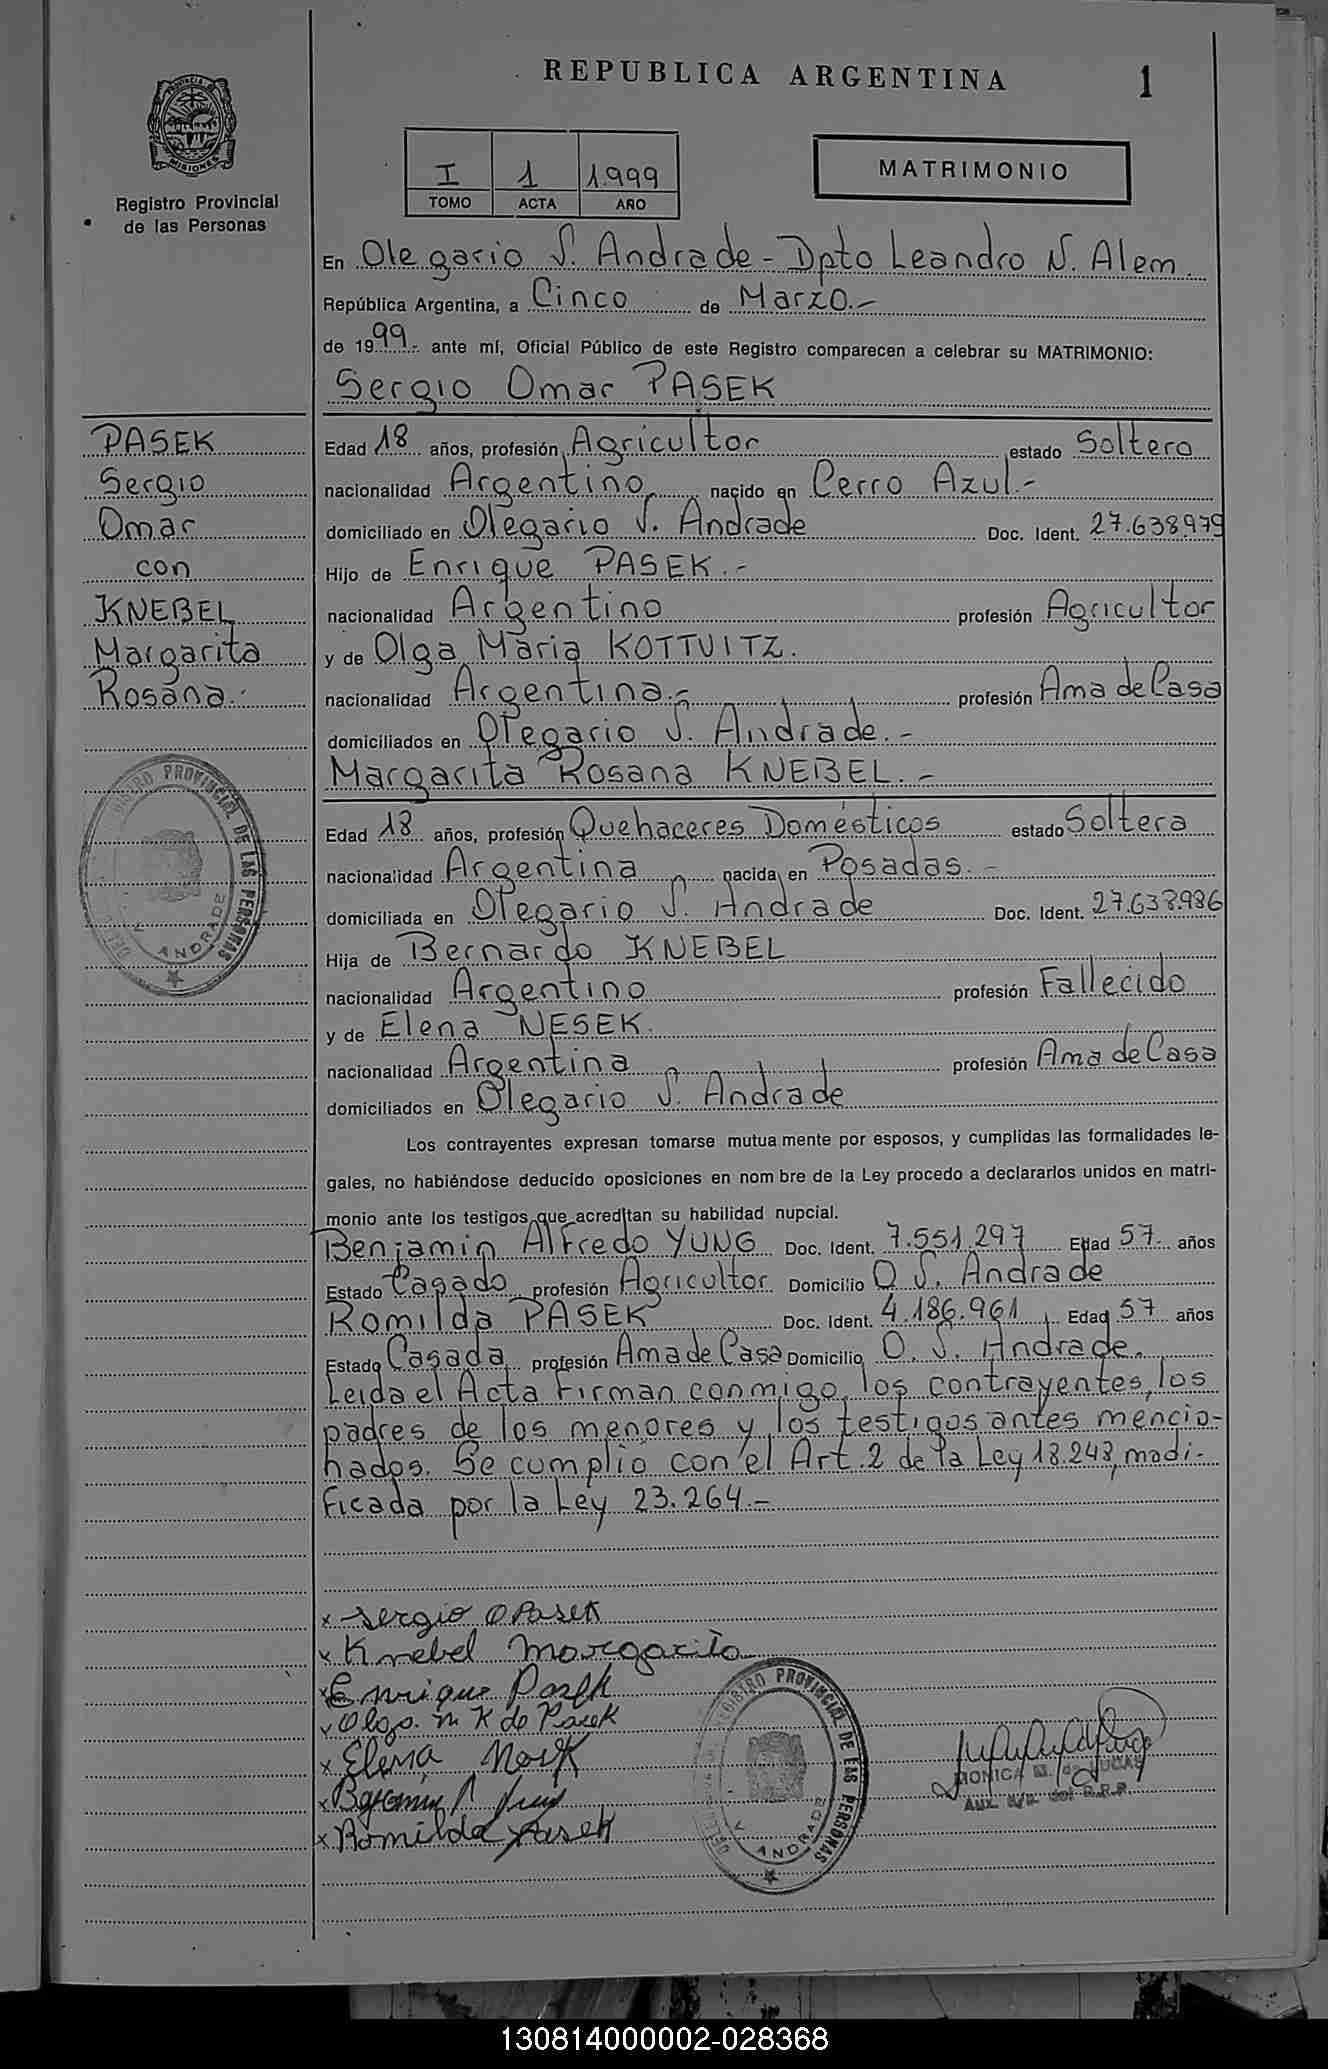 REPUBLICA ARGENTINA
1
PROVINCIA
MISIONES
Registro Provincial
de las Personas
I 1 1.999
TOMO ACTA AÑO
MATRIMONIO
En Olegario V. Andrade - Dpto Leandro N. Alem
República Argentina, a Cinco de Marzo.-
de 1999.- ante mí, Oficial Público de este Registro comparecen a celebrar su MATRIMONIO:
Sergio Omar PASEK
PASEK
Sergio
Omar
con
KNEBEL
Margarita
Rosana.-
Edad 18 años, profesión Agricultor estado Soltero
nacionalidad Argentino nacido en Cerro Azul.-
domiciliado en Olegario V. Andrade Doc. Ident. 27.638.979
Hijo de Enrique PASEK.-
nacionalidad Argentino profesión Agricultor
y de Olga Maria KOTTVITZ.
nacionalidad Argentina.- profesión Ama de Casa
domiciliados en Olegario V. Andrade.-
Margarita Rosana KNEBEL.-
Edad 18 años, profesión Quehaceres Domésticos estado Soltera
nacionalidad Argentina nacida en Posadas.-
domiciliada en Olegario V. Andrade Doc. Ident. 27.638.986
Hija de Bernardo KNEBEL
nacionalidad Argentino profesión Fallecido
y de Elena NESEK.
nacionalidad Argentina profesión Ama de Casa
domiciliados en Olegario V. Andrade
Los contrayentes expresan tomarse mutua mente por esposos, y cumplidas las formalidades le-
gales, no habiéndose deducido oposiciones en nom bre de la Ley procedo a declararlos unidos en matri-
monio ante los testigos que acreditan su habilidad nupcial.
Benjamin Alfredo YUNG Doc. Ident. 7.551.297 Edad 57.- años
Estado Casado profesión Agricultor Domicilio O V. Andrade
Romilda PASEK Doc. Ident. 4.186.961 Edad 57 años
Estado Casada profesión Ama de Casa Domicilio O. V. Andrade.
Leida el Acta Firman conmigo, los contrayentes, los
padres de los menores y los testigos antes mencio-
nados. Se cumplió con el Art. 2 de la Ley 18.248, modi-
ficada por la Ley 23.264.-
x Sergio O Pasek
x Knebel Margarita
x Enrique Pasek
x Olga. M K de Pasek
x Elena
x
x Romilda Pasek
REGISTRO PROVINCIAL DE LAS PERSONAS
ANDRADE
REGISTRO PROVINCIAL DE LAS PERSONAS
ANDRADE
MONICA M. de LUCAS
130814000002-028368